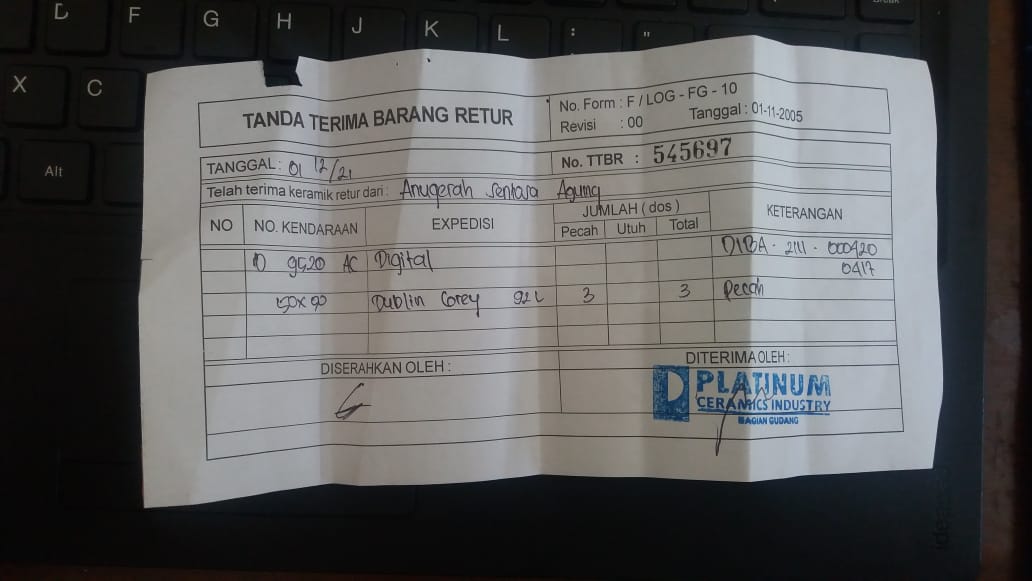 D F G H J K L : "
X C
Alt
TANDA TERIMA BARANG RETUR
No. Form : F / LOG - FG - 10
Revisi : 00 Tanggal : 01-11-2005
TANGGAL : 01 12/21
No. TTBR : 545697
Telah terima keramik retur dari : Anugerah Sentosa Agung
NO NO. KENDARAAN EXPEDISI JUMLAH ( dos ) KETERANGAN
Pecah Utuh Total
D 9520 AC Digital DIBA - 2111 - 000420
0417
Dublin Grey 3 3 Pecah
DISERAHKAN OLEH :
DITERIMA OLEH :
PLATINUM
CERAMICS INDUSTRY
BAGIAN GUDANG